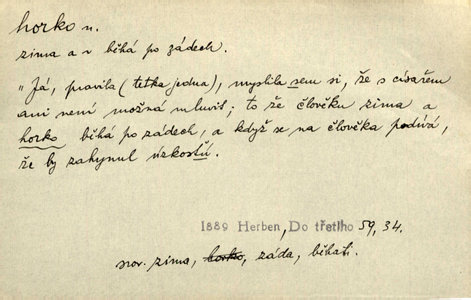 horko n.
zima a v běhá po zádech.
"Já, pravila (tetka jedna), myslila sem si, že s císařem
ani není možná mluvit; to že člověku zima a
horko běhá po zádech, a když se na člověka podívá,
že by zahynul úzkostů.
1889 Herben, Do třetího 59, 34.
srov. zima, horko, záda, běhati.